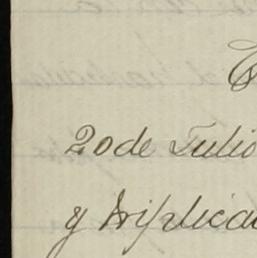 20 de Julio
y triplica